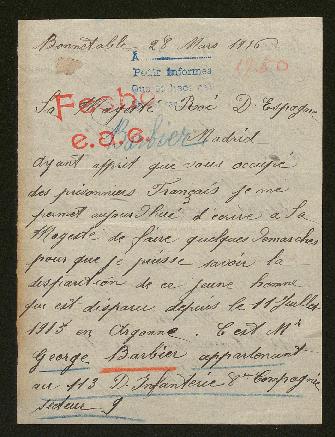 Bonnétable, 28 Mars 1916
A
Pedir informes
Sa Magesté Roi D. Espagne
Fecby
e.a.e.
Barbier
Madrid
Ayant apprit que vous occupé
des prisonniers Français je me
permet aujourd'hui d'ecrire à Sa
Magesté de faire quelques demarches
pour que je puisse savoir la
disparition de ce jeune homme
qui est disparu depuis le 11 Juillet
1915 en Argonne. C'est Mr
George Barbier appartenant
au 113 D'Infanterie 8me Compagnie
secteur 9